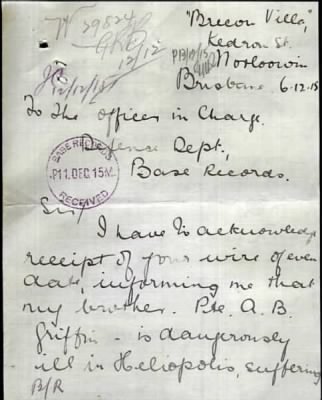 "Brecon Villa",
Kedron St.
Wooloowin
Brisbane 6-12-15
W 29824
12/12
12/12/15
To The Officer in Charge.
Defence Dept.,
Base Records.
BASE RECORDS
P11.DEC.15M
RECEIVED
Sir/
I have to acknowledge
receipt of your wire of even
date, informing me that
my brother. Pte. A. B.
Griffin - is dangerously
ill in Heliopolis, suffering
B/R